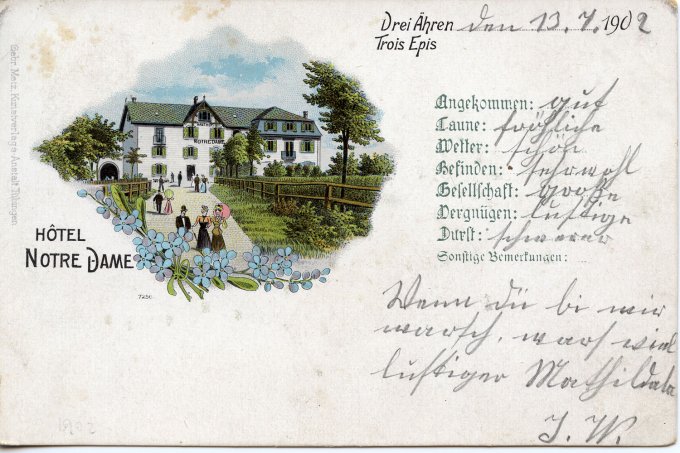 Drei Ähren den 13. 7. 1902
Trois Epis
Angekommen: gut
Laune: fröhliche
Wetter: schön
Befinden: sehr wohl
Gesellschaft: große
Vergnügen: lustige
Durst: schwerer
Sonstige Bemerkungen:
Wenn dü bi mir
warsch, wars viel
lustiger Mathildala
J. W.
HÔTEL
NOTRE DAME
NOTRE DAME
7250
Gebr. Metz, Kunstverlags-Anstalt, Tübingen